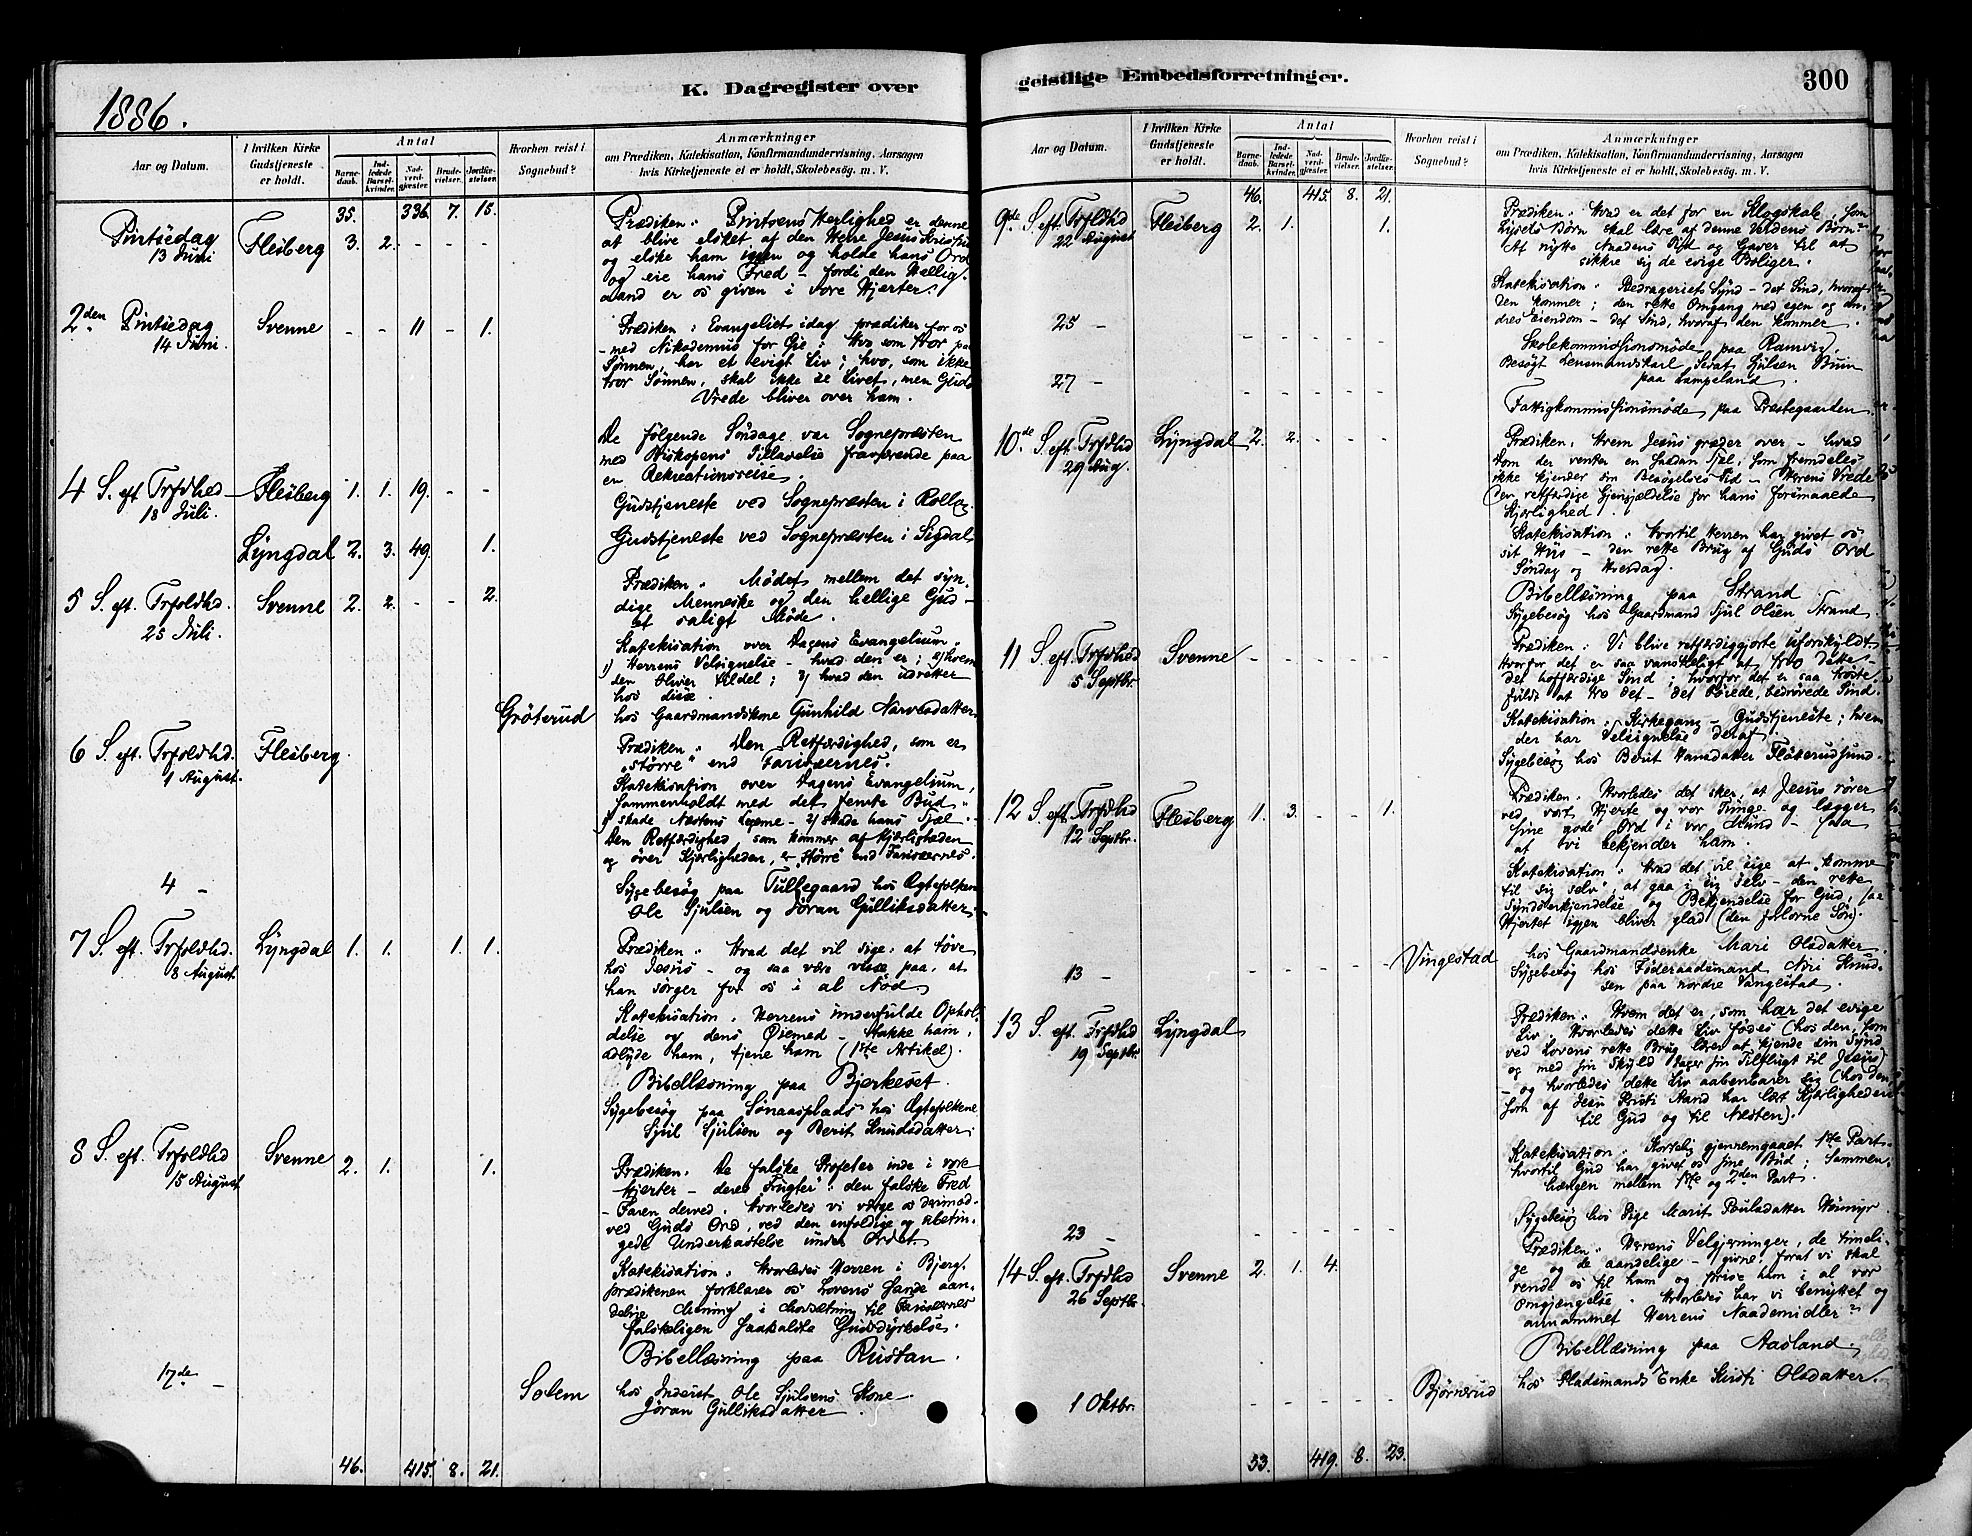 1886.
K. Dagregister over
Aar og Datum.
I hvilken Kirke Gudstjeneste er holdt.
Antal
Barnedaab.
Indledede Barselkvinder.
Nadverdgjester.
Brudevielser.
Jordfæstelser.
Hvorhen reist i Sognebud?
Anmærkninger
om Prædiken, Katekisation, Konfirmandundervisning, Aarsagen
hvis Kirketjeneste ei er holdt, Skolebesøg. m. V.
35. 336. 7. 15.
Pintsedag 13 Juni Flesberg 3. 2. - - -
Prædiken: Pintsens Herlighed er denne
at blive elsket af den Herre Jesus Kristus
og elske ham igjen og holde hans Ord
og eie hans Fred - fordi den Hellig-
aand er os given i vore Hjerter.
2den Pintsedag 14 Juni. Svenne - - 11 - 1.
Prædiken: Evangeliet idag prædiker for os
- med Nikodemus for Øie: Hvo som tror paa
Sønnen, har et evigt Liv; hvo, som ikke
tror Sønnen, skal ikke se Livet, men Guds
Vrede bliver over ham.
De følgende Søndage var Sognepræsten
med Biskopens Tilladelse fraværende paa
en Rekreationsreise.
4 S. eft. Trfdhed 18 Juli. Flesberg 1. 1. 19. - -
Gudstjeneste ved Sognepræsten i Rollag.
Lyngdal 2. 3. 49. 1.
Gudstjeneste ved Sognepræsten i Sigdal
5 S. eft. Trfoldhd. 25 Juli. Svenne 2. 2. - - 2.
Prædiken: Mødet mellem det syn-
dige Menneske og den hellige Gud -
et saligt Møde.
Katekisation over Dagens Evangelium:
1) Herrens Velsignelse - hvad den er; 2) hvem
den bliver tildel; 3) hvad den udretter
hos disse.
Grøterud
hos Gaardmandskone Gunhild Narvesdatter
6 S. eft. Trfoldhd. 1 August. Flesberg.
Prædiken: Den Retfærdighed, som er
"større" end Farisæernes.
Katekisation over Dagens Evangelium,
sammenholdt med det femte Bud:
1) skade Næstens Legeme - 2) skade hans Sjæl.
Den Retfærdighed som kommer af Kjærligheden
og øver Kjærligheden, er "større" end Farisæernes.
4 -
Sygebesøg paa Tullegaard hos Ægtefolkene
Ole Sjulsen og Jøran Gulliksdatter.
7 S. eft. Trfoldhd. 8 August. Lyngdal 1. 1. 1. 1.
Prædiken: Hvad det vil sige: at tøve
hos Jesus - og saa være visse paa, at
han sørger for os i al Nød
Katekisation: Herrens underfulde Ophol-
delse og dens Øiemed - takke ham,
adlyde ham, tjene ham (1ste Artikel).
Bibellæsning paa Bjerkeset.
Sygebesøg paa Sønaasplads hos Ægtefolkene
Sjul Sjulsen og Berit Knudsdatter.
8 S. eft. Trfoldhd 15 August Svenne 2. 1. 1.
Prædiken: De falske Profeter inde i vore
Hjerter - deres "Frugter": den falske Fred
- Faren derved. Hvorledes vi vælge os derimod
ved Guds Ord, ved den enfoldige og ubetin-
gede Underkastelse under Ordet.
Katekisation: Hvorledes Herren i Bjerg-
prædikenen forklarer os Lovens sande aan-
delige Mening i Modsætning til Farisæernes
falskeligen saakaldte Gudsdyrkelse.
Bibellæsning paa Rustan.
17de -
Solem
hos Inderst Ole Sjulsens Kone
Jøran Gulliksdatter.
46. 415. 8. 21.
geistlige Embedsforretninger.
300
Aar og Datum.
I hvilken Kirke Gudstjeneste er holdt.
Antal
Barnedaab.
Indledede Barselkvinder.
Nadverdgjester.
Brudevielser.
Jordfæstelser.
Hvorhen reist i Sognebud?
Anmærkninger
om Prædiken, Katekisation, Konfirmandundervisning, Aarsagen
hvis Kirketjeneste ei er holdt, Skolebesøg. m. V.
46. 415. 8. 21.
9de S. eft. Trfoldhd 22 August Flesberg 2. 1. 1.
Prædiken: Hvad er det for en Klogskab, som
Lysets Børn skal lære af denne Verdens Børn?
At nytte Naadens Tid og Gaver til at
sikkre sig de evige Boliger.
Katekisation: Bedrageriets Synd - det Sind, hvoraf
den kommer; den rette Omgang med egen og an-
dres Eiendom - det Sind, hvoraf den kommer.
25 - - - - - -
Skolekommissionsmøde paa Ramvik
Besøgt Lensmandskarl Sevat Sjulsen Bruin
paa Lampeland.
27 - - - - - -
Fattigkommissionsmøde paa Præstegaarden
10de S. eft. Trfdhd 29 Aug. Lyngdal 2. 2. - - -
Prædiken: Hvem Jesus græder over - hvad
Dom der venter en saadan Sjæl, som fremdeles
ikke kjender sin Besøgelses Tid - Herrens Vrede
(den retfærdige Gjengjældelse for hans forsmaaede
Kjærlighed.
Katekisation: Hvortil Herren har givet os
sit Hus - den rette Brug af Guds Ord
Søndag og Hverdag.
Bibellæsning paa Strand
Sygebesøg hos Gaardmand Sjul Olsen Strand
11 S. eft. Trfdhed 5 Septbr. Svenne - - - - -
Prædiken: Vi blive retfærdiggjorte uforskyldt
Hvorfor det er saa vanskeligt at tro dette -
det hoffærdige Sind; hvorfor det er saa trøste-
fuldt at tro det - det bøiede, bedrøvede Sind.
Katekisation: Kirkegang - Gudstjeneste; hvem
der har Velsignelse deraf.
Sygebesøg hos Berit Hansdatter Fløterudsund.
12 S. eft. Trfdhd 12 Septbr. Flesberg 1. 3. - - 1.
Prædiken: Hvorledes det sker, at Jesus rører
ved vort Hjerte og vor Tunge og lægger
sine gode Ord i vor Mund - saa
at vi bekjender ham.
Katekisation: Hvad det vil sige at "komme
til sig selv", at gaa i sig selv - den rette
Syndserkjendelse og Bekjendelse for Gud, saa
Hjertet igjen bliver glad (den forlorne Søn).
Vingestad
hos Gaardmandsenke Mari Olsdatter
13 - - - - - -
Sygebesøg hos Føderaadsmand Niri Knud-
sen paa nordre Vangestad.
13 S. eft. Trfdhd 19 Septbr. Lyngdal
Prædiken: Hvem det er, som har det evige
Liv. Hvorledes dette Liv fødes (hos den, som
ved Lovens rette Brug lærer at kjende sin Synd
og med sin Skyld tager sin Tilflugt til Jesus)
- og hvorledes dette Liv aabenbarer sig (hos den
som af Jesu Kristi Aand har lært Kjærligheden
til Gud og til Næsten).
Katekisation: Kortelig gjennemgaaet 1ste Part -
hvortil Gud har givet os sine Bud; Sammen-
hængen mellem 1ste og 2den Part.
23 - - - - - -
Sygebesøg hos Pige Marit Poulsdatter
14 S. eft. Trfdhd 26 Septbr. Svenne 2. 1. 4.
Prædiken: Herrens Velgjerninger, de timeli-
ge og de aandelige - givne, forat vi skal
vende os til ham og prise ham i al vor
Omgjængelse. Hvorledes har vi benyttet og
annammet Herrens Naademidler?
Bibellæsning paa Aasland.
1 Oktbr. - - - - - Bjørnerud
hos Pladsmands Enke Kisti Olsdatter
53. 419. 8. 23.